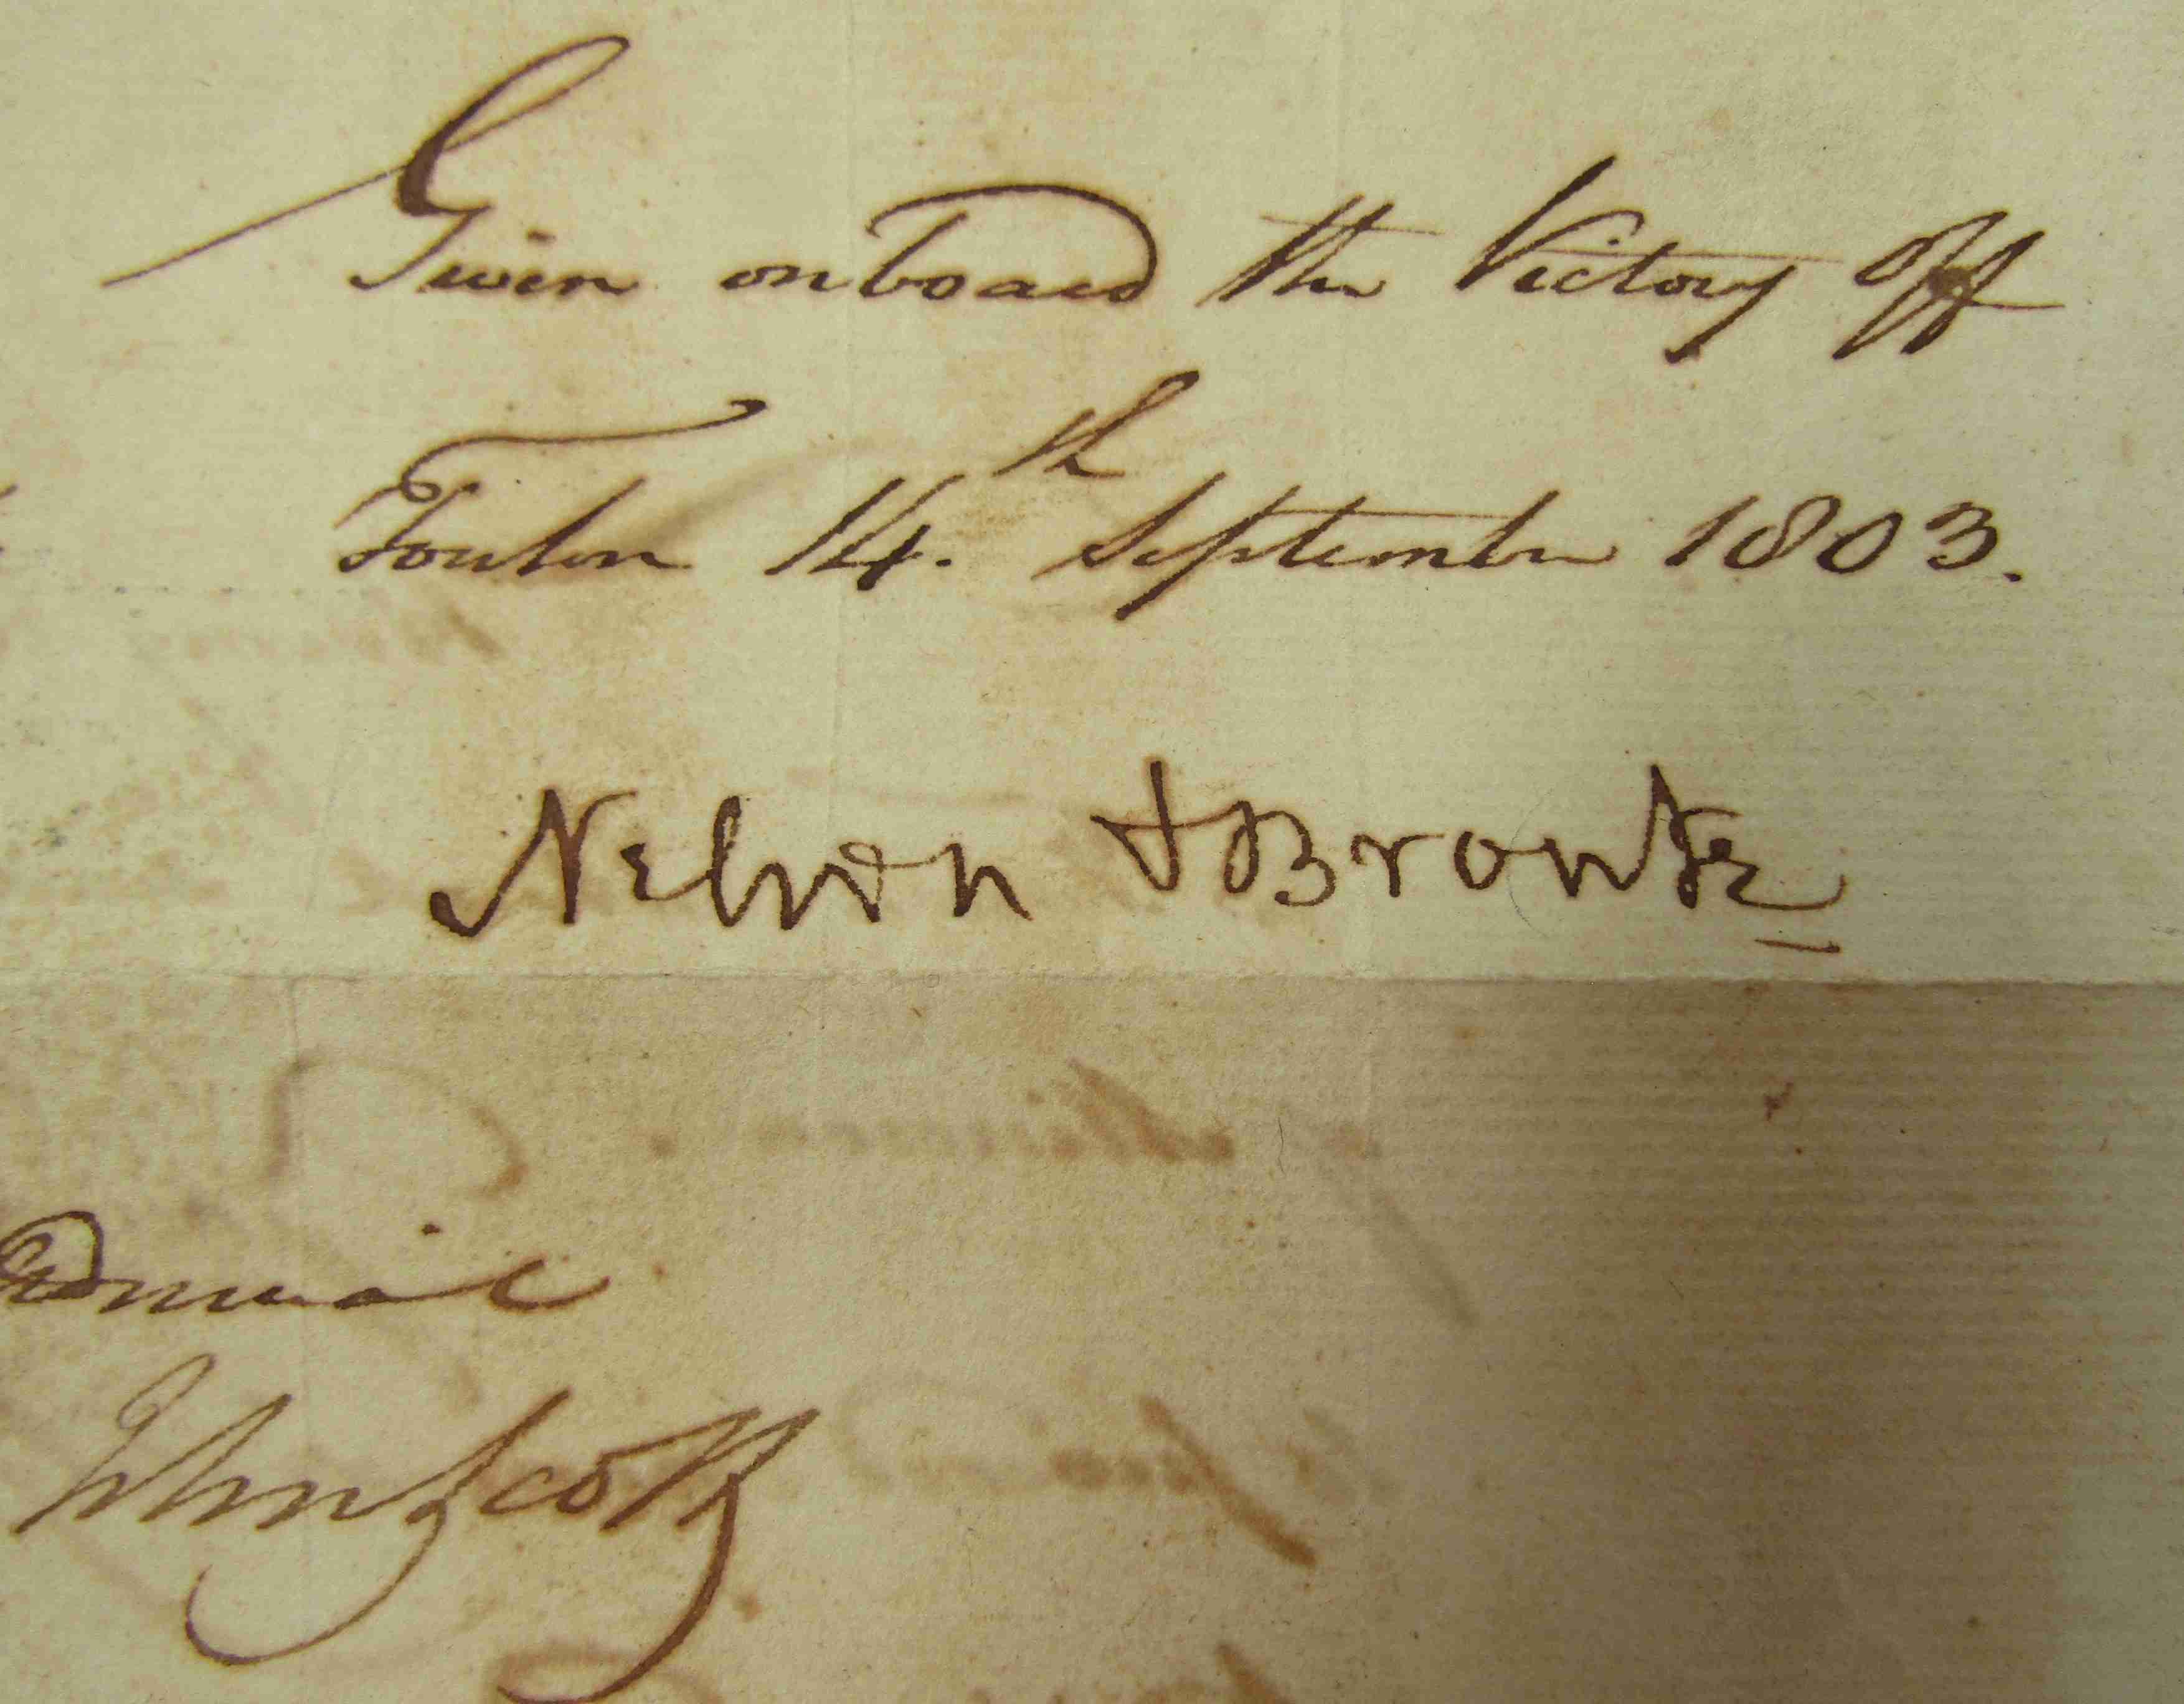 Given on board the Victory off
Toulon 14.th September 1803.
Nelson & Bronte
John Scott